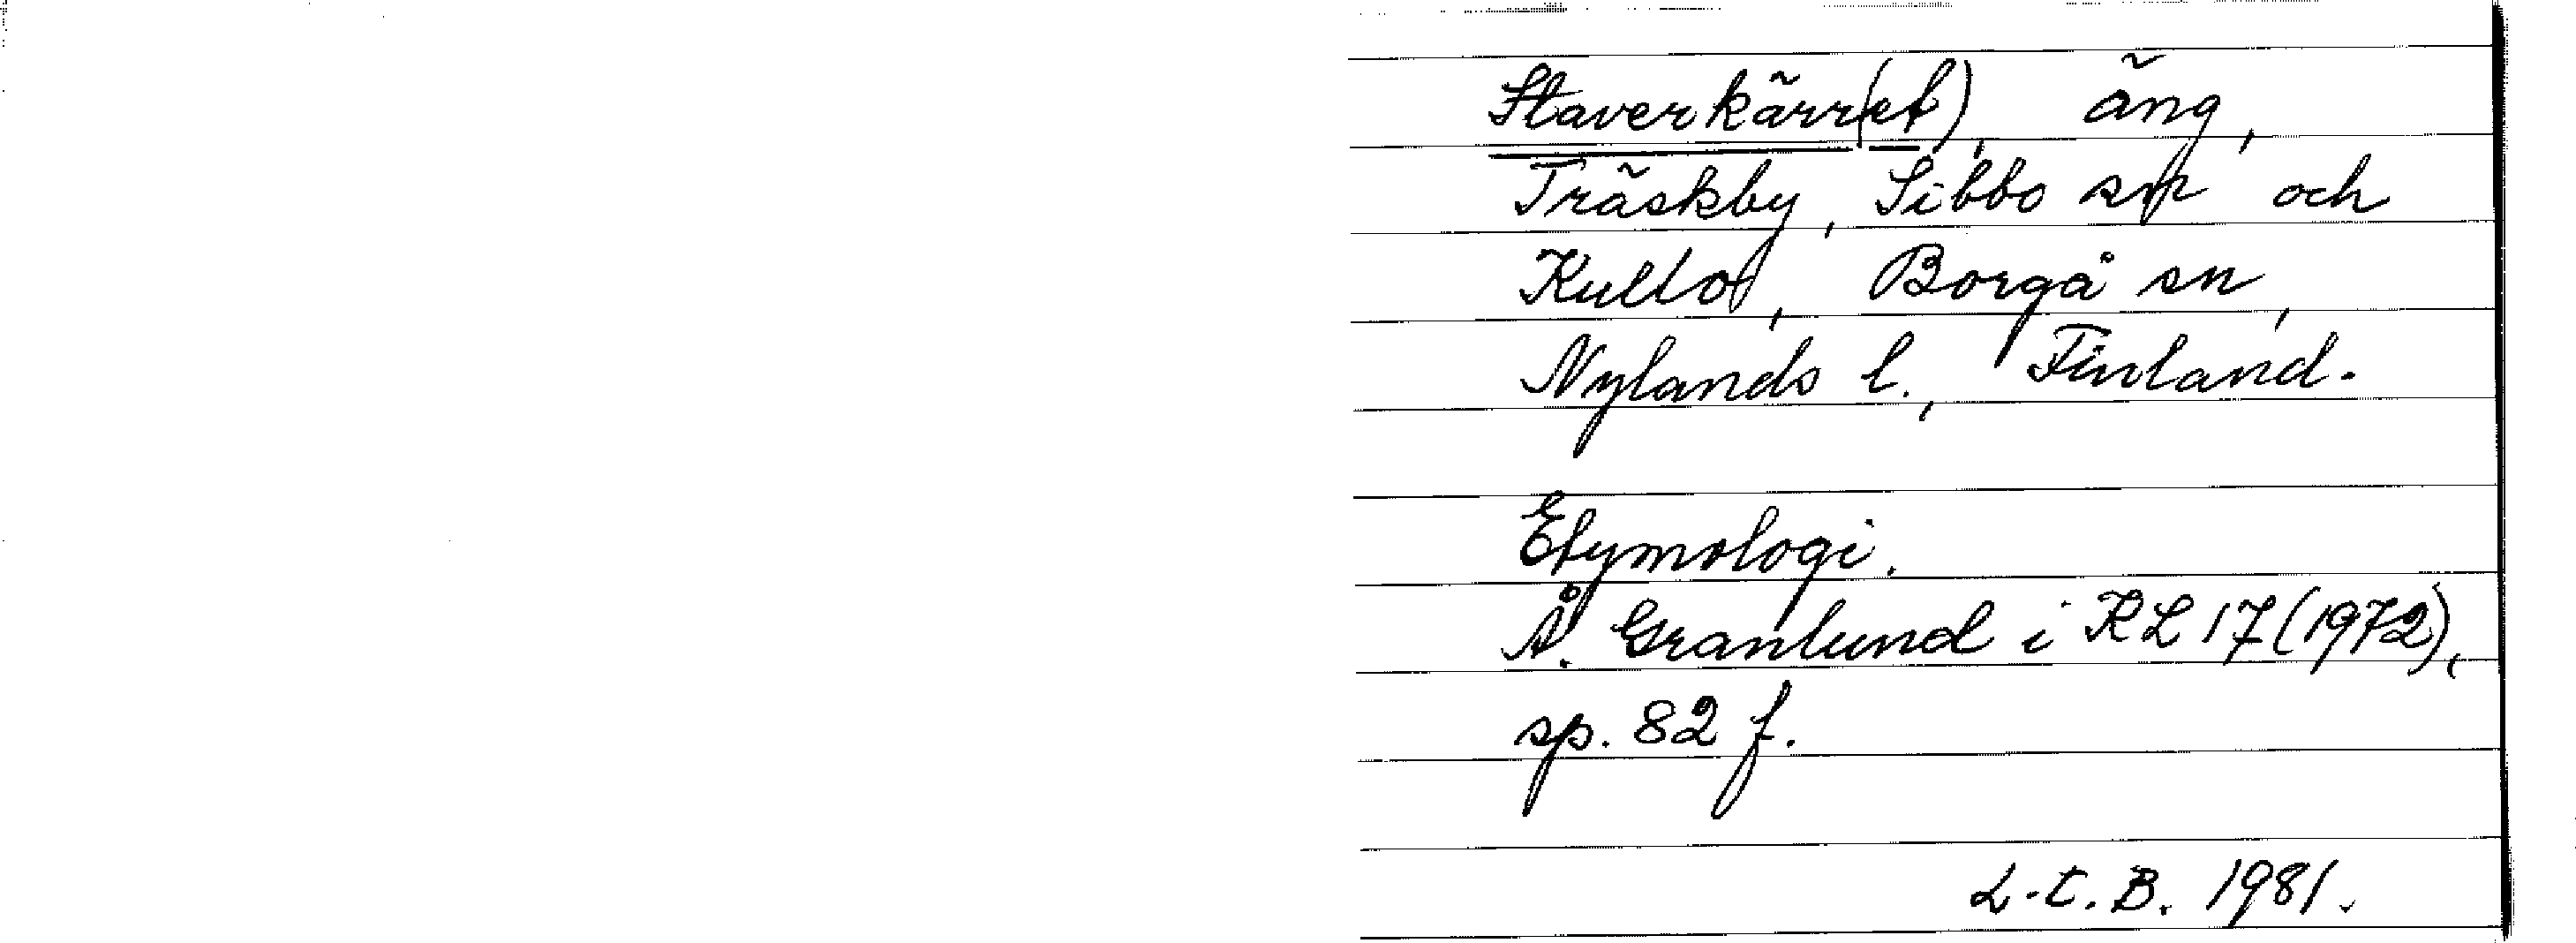 Staverkärr(et), äng,
Träskby, Sibbo sn och
Kullo, Borgå sn,
Nylands l., Finland.
Etymologi.
Å. Granlund i KL 17 (1972),
sp. 82 f.
L-E. B. 1981.